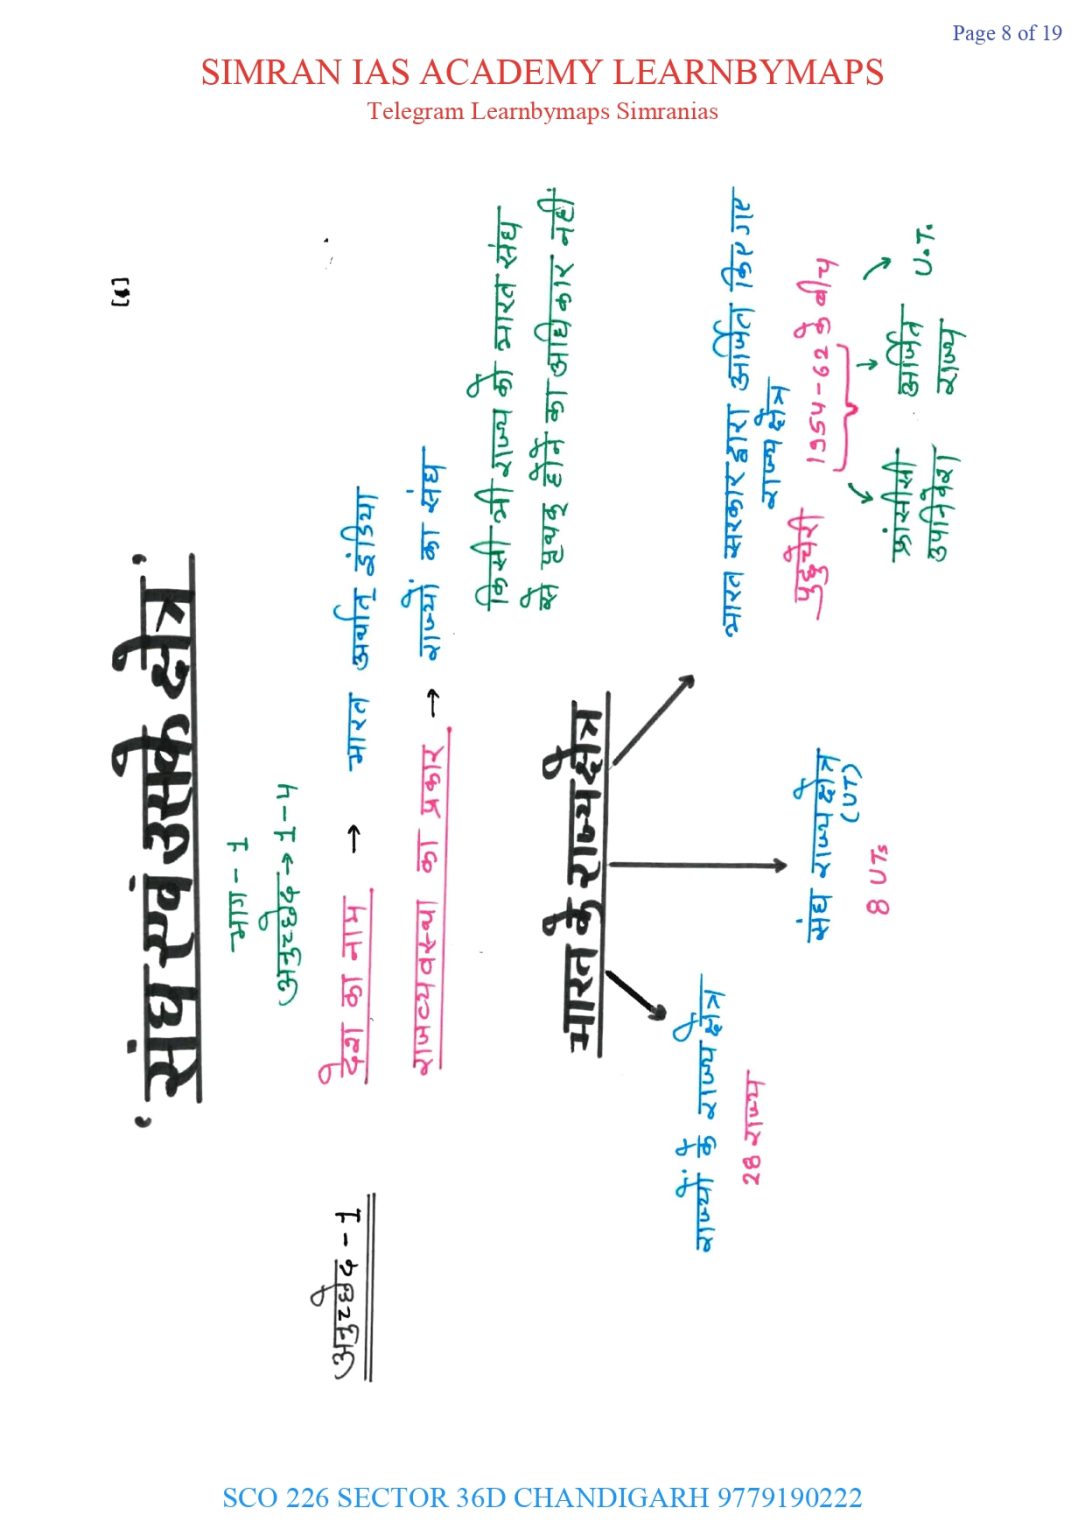 Page 8 of 19
SIMRAN IAS ACADEMY LEARNBYMAPS
Telegram Learnbymaps Simranias
[1]
'संघ एवं उसके क्षेत्र'
भाग-1
अनुच्छेद → 1-4
अनुच्छेद-1
देश का नाम → भारत अर्थात् इंडिया
राजव्यवस्था का प्रकार → राज्यों का संघ
किसी भी राज्य को भारत संघ
से पृथक् होने का अधिकार नहीं
भारत के राज्यक्षेत्र
राज्यों के राज्यक्षेत्र
28 राज्य
संघ राज्यक्षेत्र
(UT)
8 UTs
भारत सरकार द्वारा अर्जित किए गए
राज्यक्षेत्र
पुदुचेरी 1954-62 के बीच
फ्रांसीसी
उपनिवेश
अर्जित
राज्य
U.T.
SCO 226 SECTOR 36D CHANDIGARH 9779190222